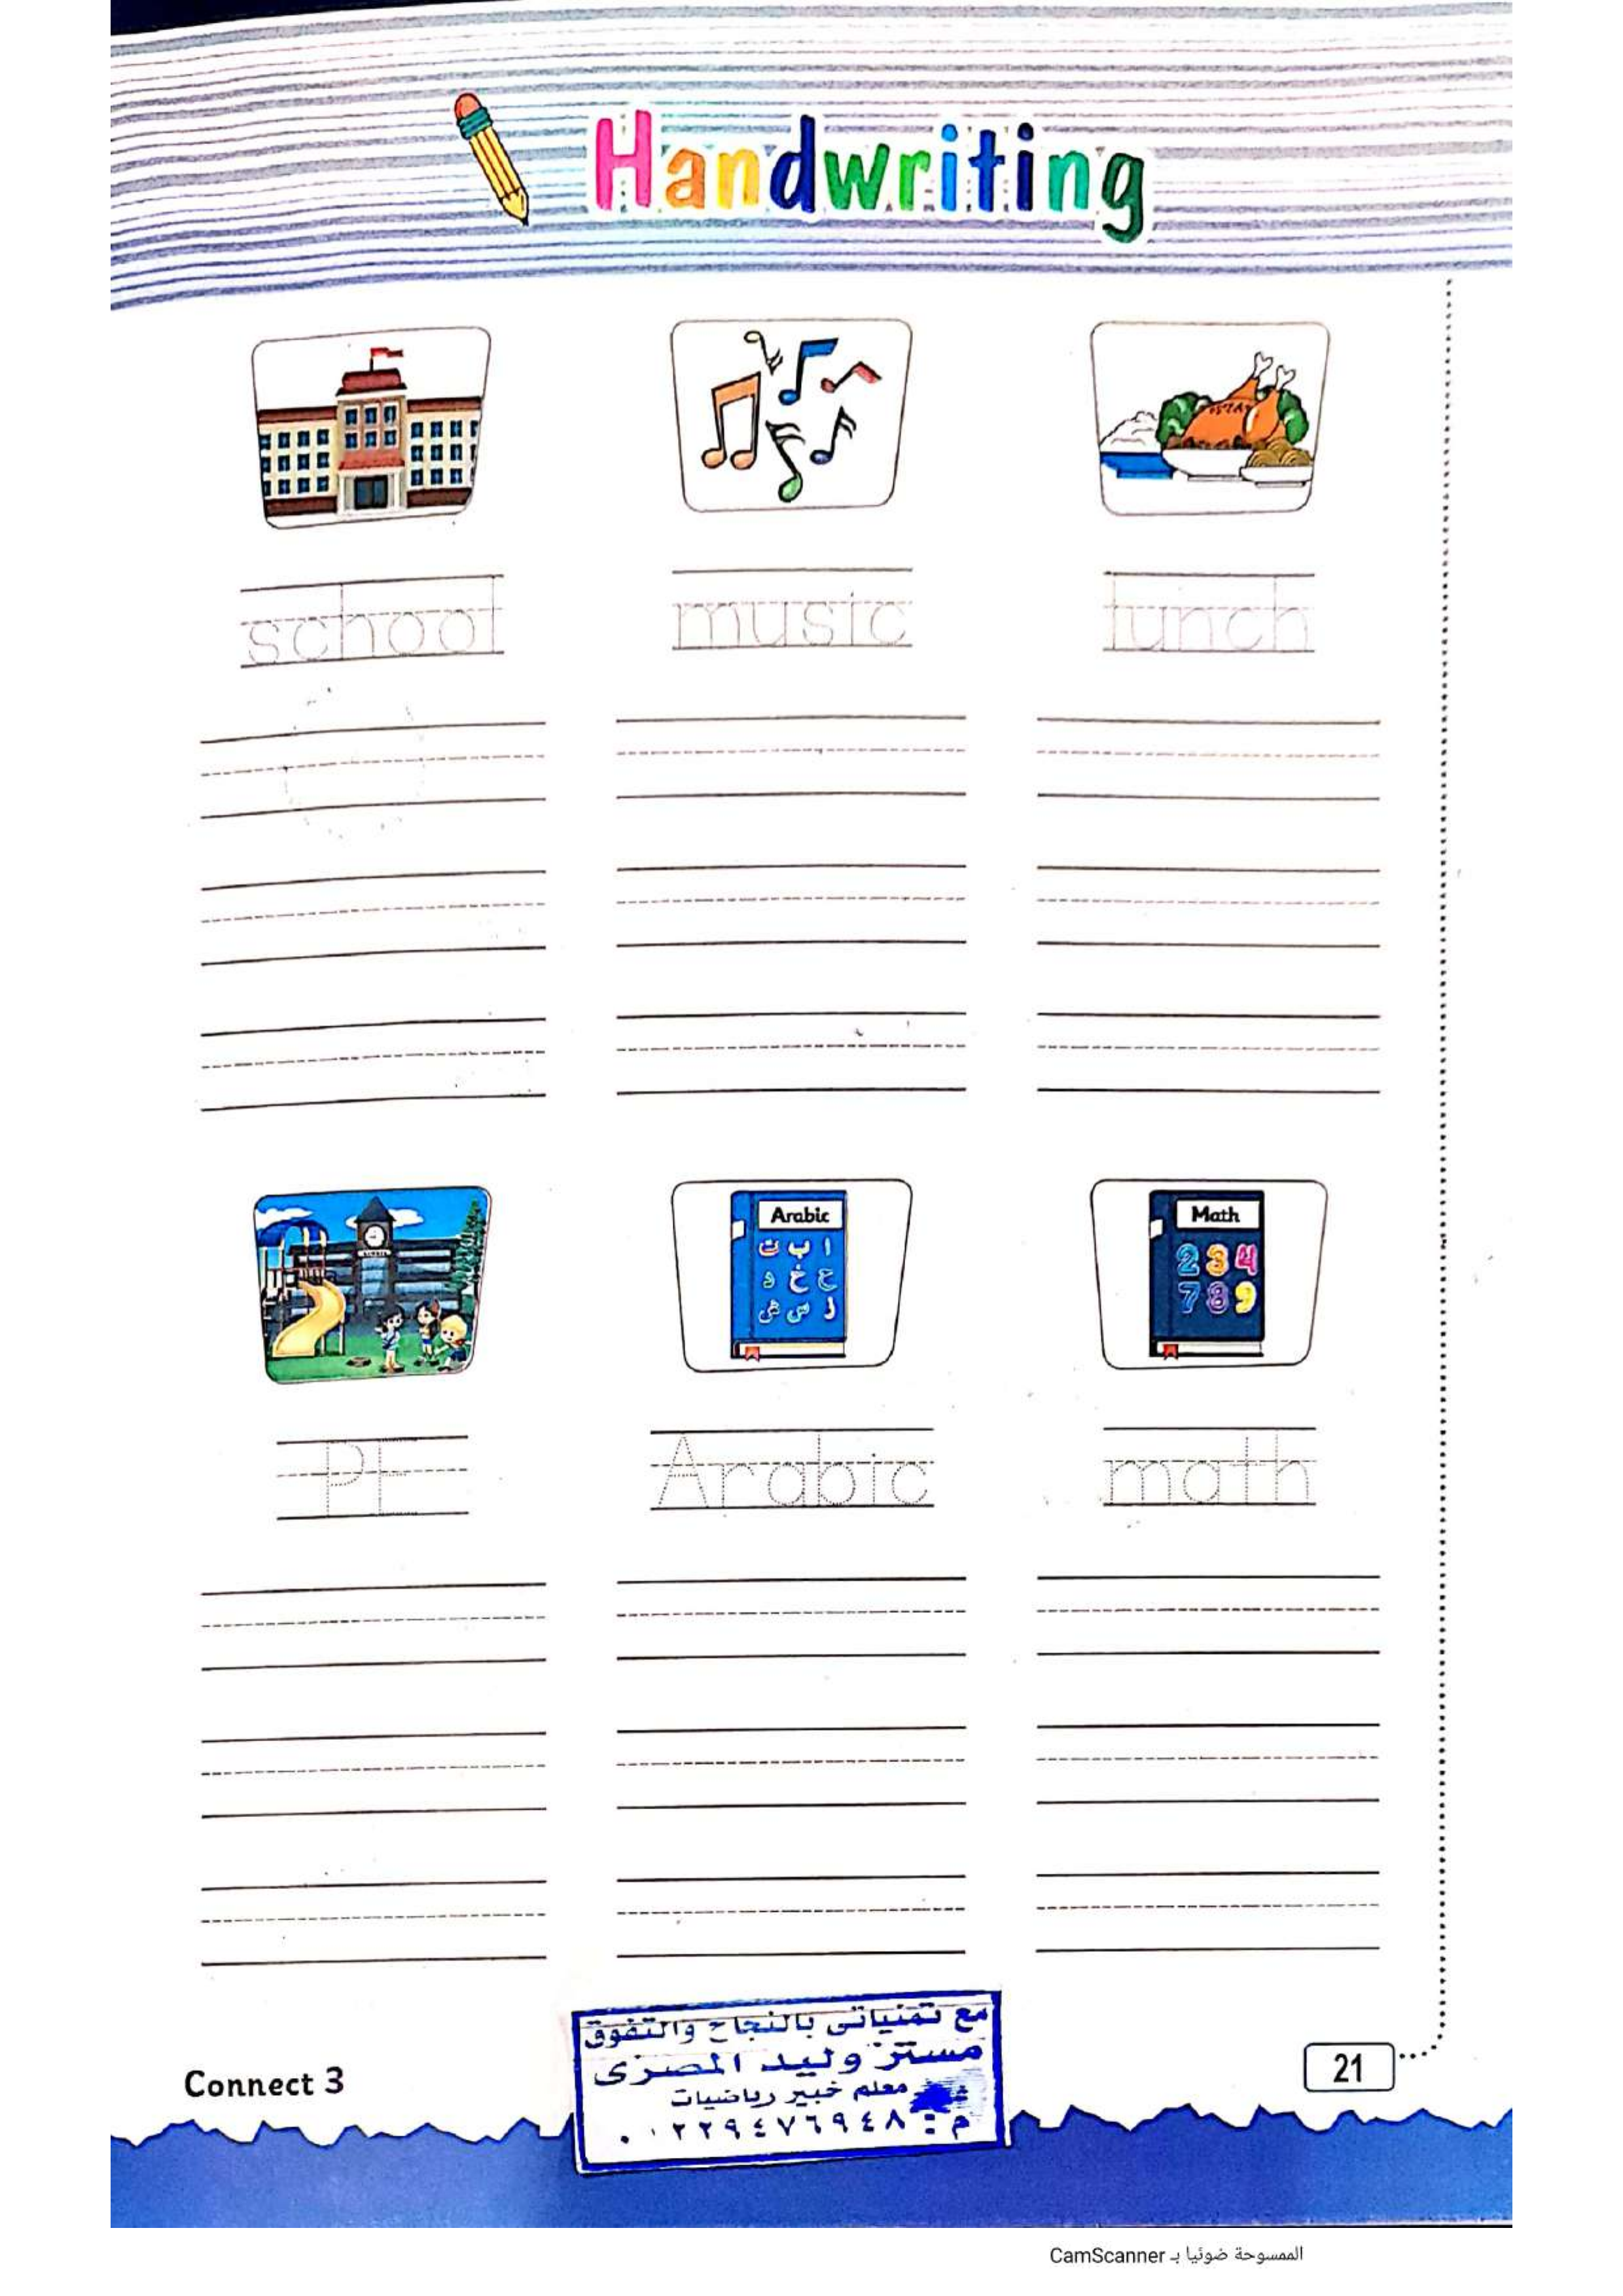 Handwriting
school music lunch
Arabic
ا ب ت
ح خ د
Math
2 3 4
7 8 9
PE Arabic math
مع تمنياتى بالنجاح والتفوق
مستر وليد المصرى
معلم خبير رياضيات
م : ٠١٢٢٩٤٧٦٩٤٨
Connect 3
21
الممسوحة ضوئيا بـ CamScanner